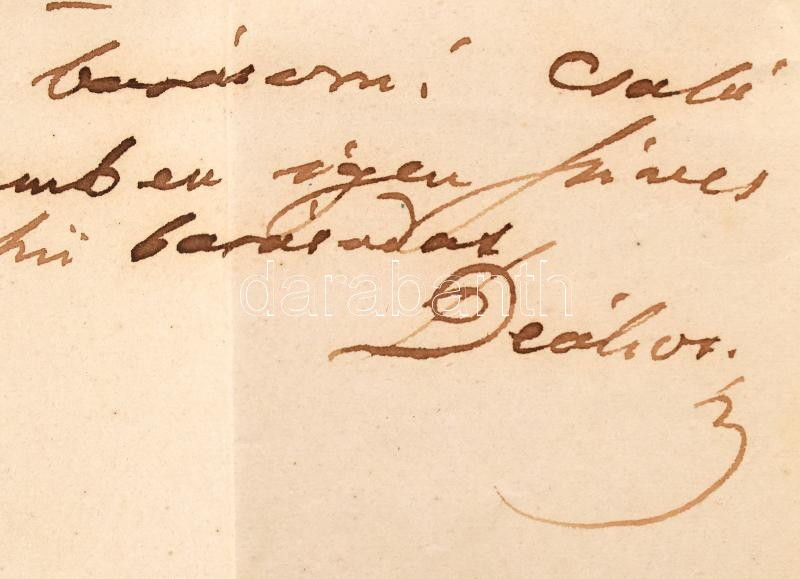 barátom! Csalá
emben igen szives
hű barátodat
Deákot.
darabanth